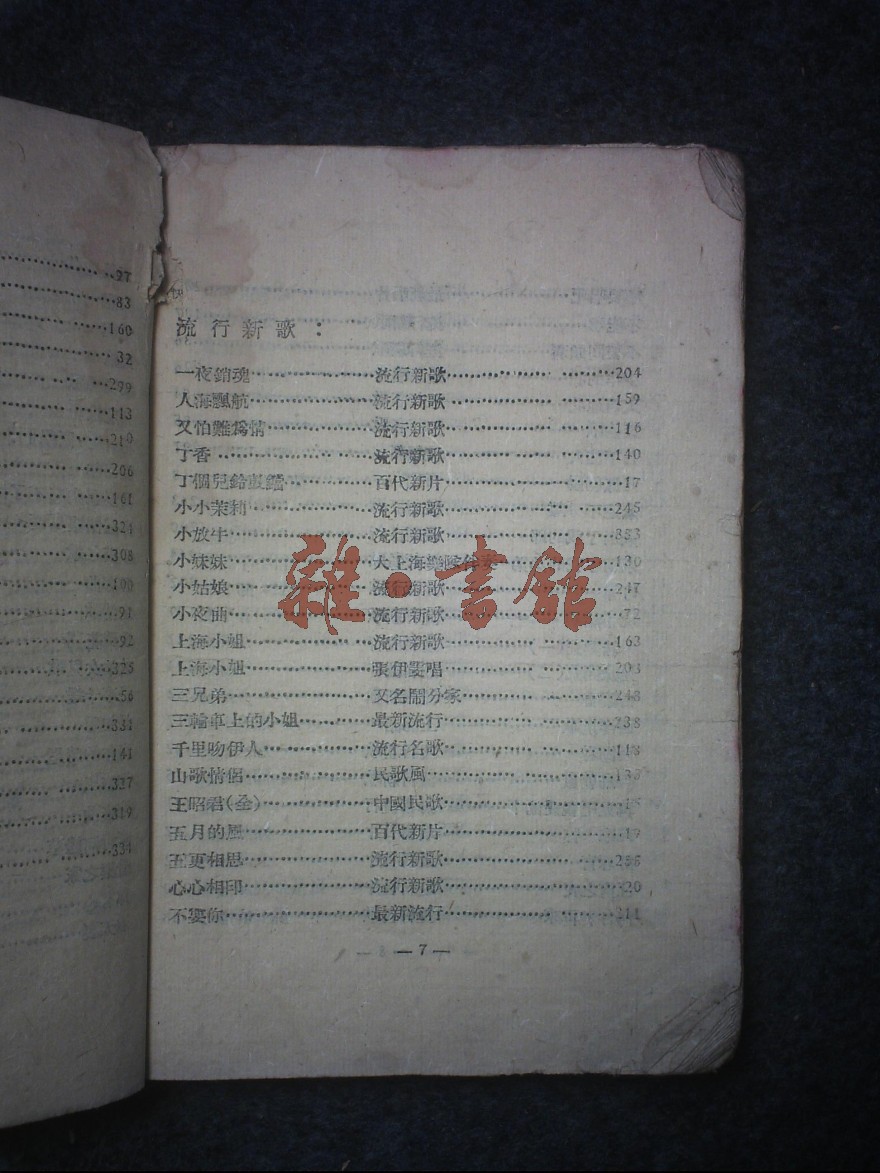 27
83
160
32
299
113
219
206
161
324
308
100
91
92
325
56
331
141
327
319
334
流行新歌：
一夜銷魂……流行新歌……204
人海飄航……流行新歌……159
又怕難爲情……流行新歌……116
丁香……流行新歌……140
百代新片……17
小小茉莉……流行新歌……245
小放牛……流行新歌……333
小妹妹……大上海樂隊伴奏……130
小姑娘……流行新歌……247
小夜曲……流行新歌……72
上海小姐……流行新歌……163
上海小姐……張伊雯唱……203
三兄弟……又名鬧分家……248
三輪車上的小姐……最新流行……238
千里吻伊人……流行名歌……118
山歌情侶……民歌風……
王昭君(全)……中國民歌……
五月的風……百代新片……19
五更相思……流行新歌……
心心相印……流行新歌……20
不要你……最新流行……211
—7—
雜·書館